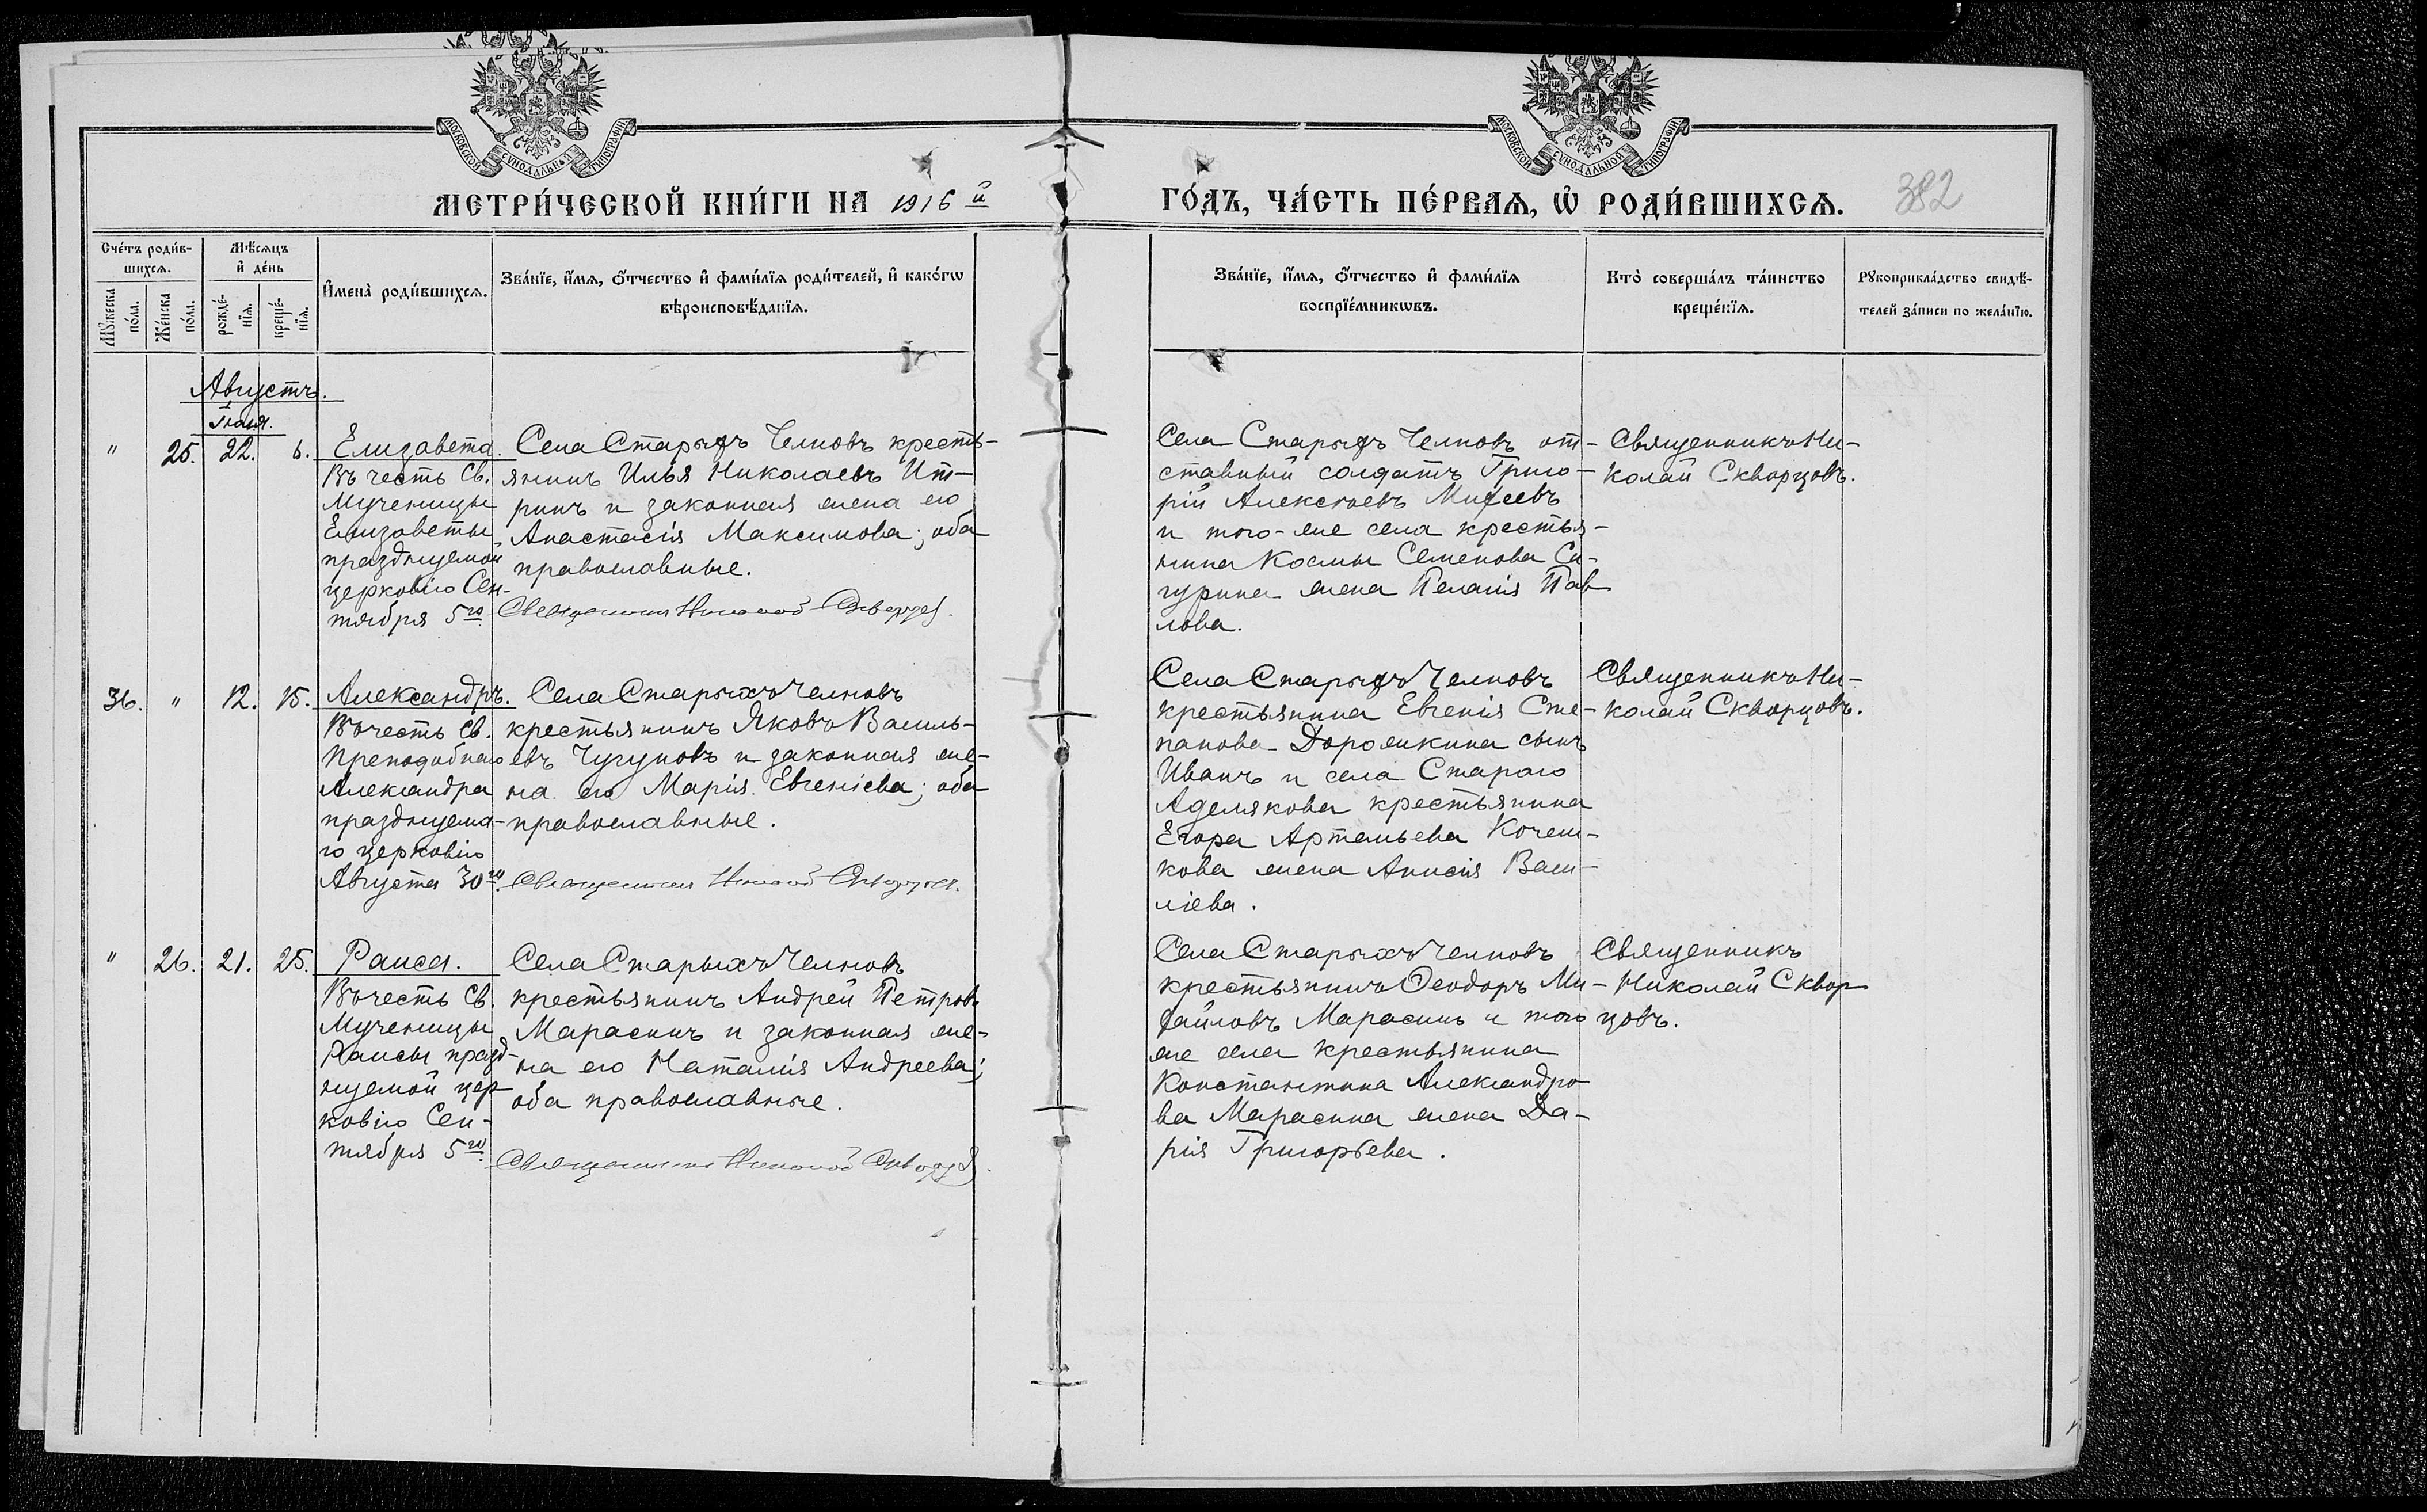 МОСКОВСКОЙ СѴНОДАЛЬНОЙ ТИПОГРАФІИ
МОСКОВСКОЙ СѴНОДАЛЬНОЙ ТИПОГРАФІИ
МЕТРИ́ЧЕСКОЙ КНИ́ГИ НА 1916 й
ГО́ДЪ, ЧА́СТЬ ПЕ́РВАѦ, Ѡ҆ РОДИ́ВШИХСѦ.
382
Сче́тъ роди́в-
шихсѧ.
Мѣ́сѧцъ
и҆ де́нь
Мꙋ́жеска
по́ла.
Же́нска
по́ла.
рожде́-
нїѧ.
креще́-
нїѧ.
И҆мена̀ роди́вшихсѧ.
Зва́нїе, и҆́мѧ, ѻ҆́тчество и҆ фами́лїѧ роди́телей, и҆ како́гѡ
вѣроисповѣ́данїѧ.
Зва́нїе, и҆́мѧ, ѻ҆́тчество и҆ фами́лїѧ
воспрїе́мникѡвъ.
Кто̀ соверша́лъ та́инство
креще́нїѧ.
Рꙋкоприкла́дство свидѣ́-
телей за́писи по жела́нїю.
Августъ.
Іюля.
" 25. 22. 6.
Елизавета.
Въ честь Св.
Мученицы
Елизаветы
празднуемой
церковію Сен-
тября 5го.
Села Старыхъ Челновъ кресть-
янинъ Илья Николаевъ
ринъ и законная жена его
Анастасія Максимова; оба
православные.
Священникъ Николай Скворцовъ.
Села Старыхъ Челновъ от-
ставный солдатъ Григо-
рій Алексѣевъ Михеевъ
и того-же села крестья-
нина Космы Семенова Си-
гурина жена Пелагія Пав
лова.
Священникъ Ни-
колай Скворцовъ.
36. " 12. 15.
Александръ.
Въ честь Св.
Преподобнаго
Александра
празднуема-
го церковію
Августа 30го.
Села Старыхъ Челновъ
крестьянинъ Яковъ Василь-
евъ Чугуновъ и законная же-
на его Марія Евгеніева; оба
православные.
Священникъ Николай Скворцовъ.
Села Старыхъ Челновъ
крестьянина Евгенія Сте-
панова Дорожкина сынъ
Иванъ и села Стараго
Адемякова крестьянина
Егора Артемьева Кочеш-
кова жена Анисія Васи-
ліева.
Священникъ Ни-
колай Скворцовъ.
" 26. 21. 25.
Раиса.
Въ честь Св.
Мученицы
Раисы празд-
нуемой цер
ковію Сен-
тября 5го.
Села Старыхъ Челновъ
крестьянинъ Андрей Петровъ
Марасинъ и законная же-
на его Наталія Андреева;
оба православные.
Священникъ Николай Скворцовъ
Села Старыхъ Челновъ
крестьянинъ Ѳеодоръ Ми-
хайловъ Марасинъ и того
же села крестьянина
Константина Александро
ва Марасина жена Да-
рія Григорьева.
Священникъ
Николай Сквор
цовъ.